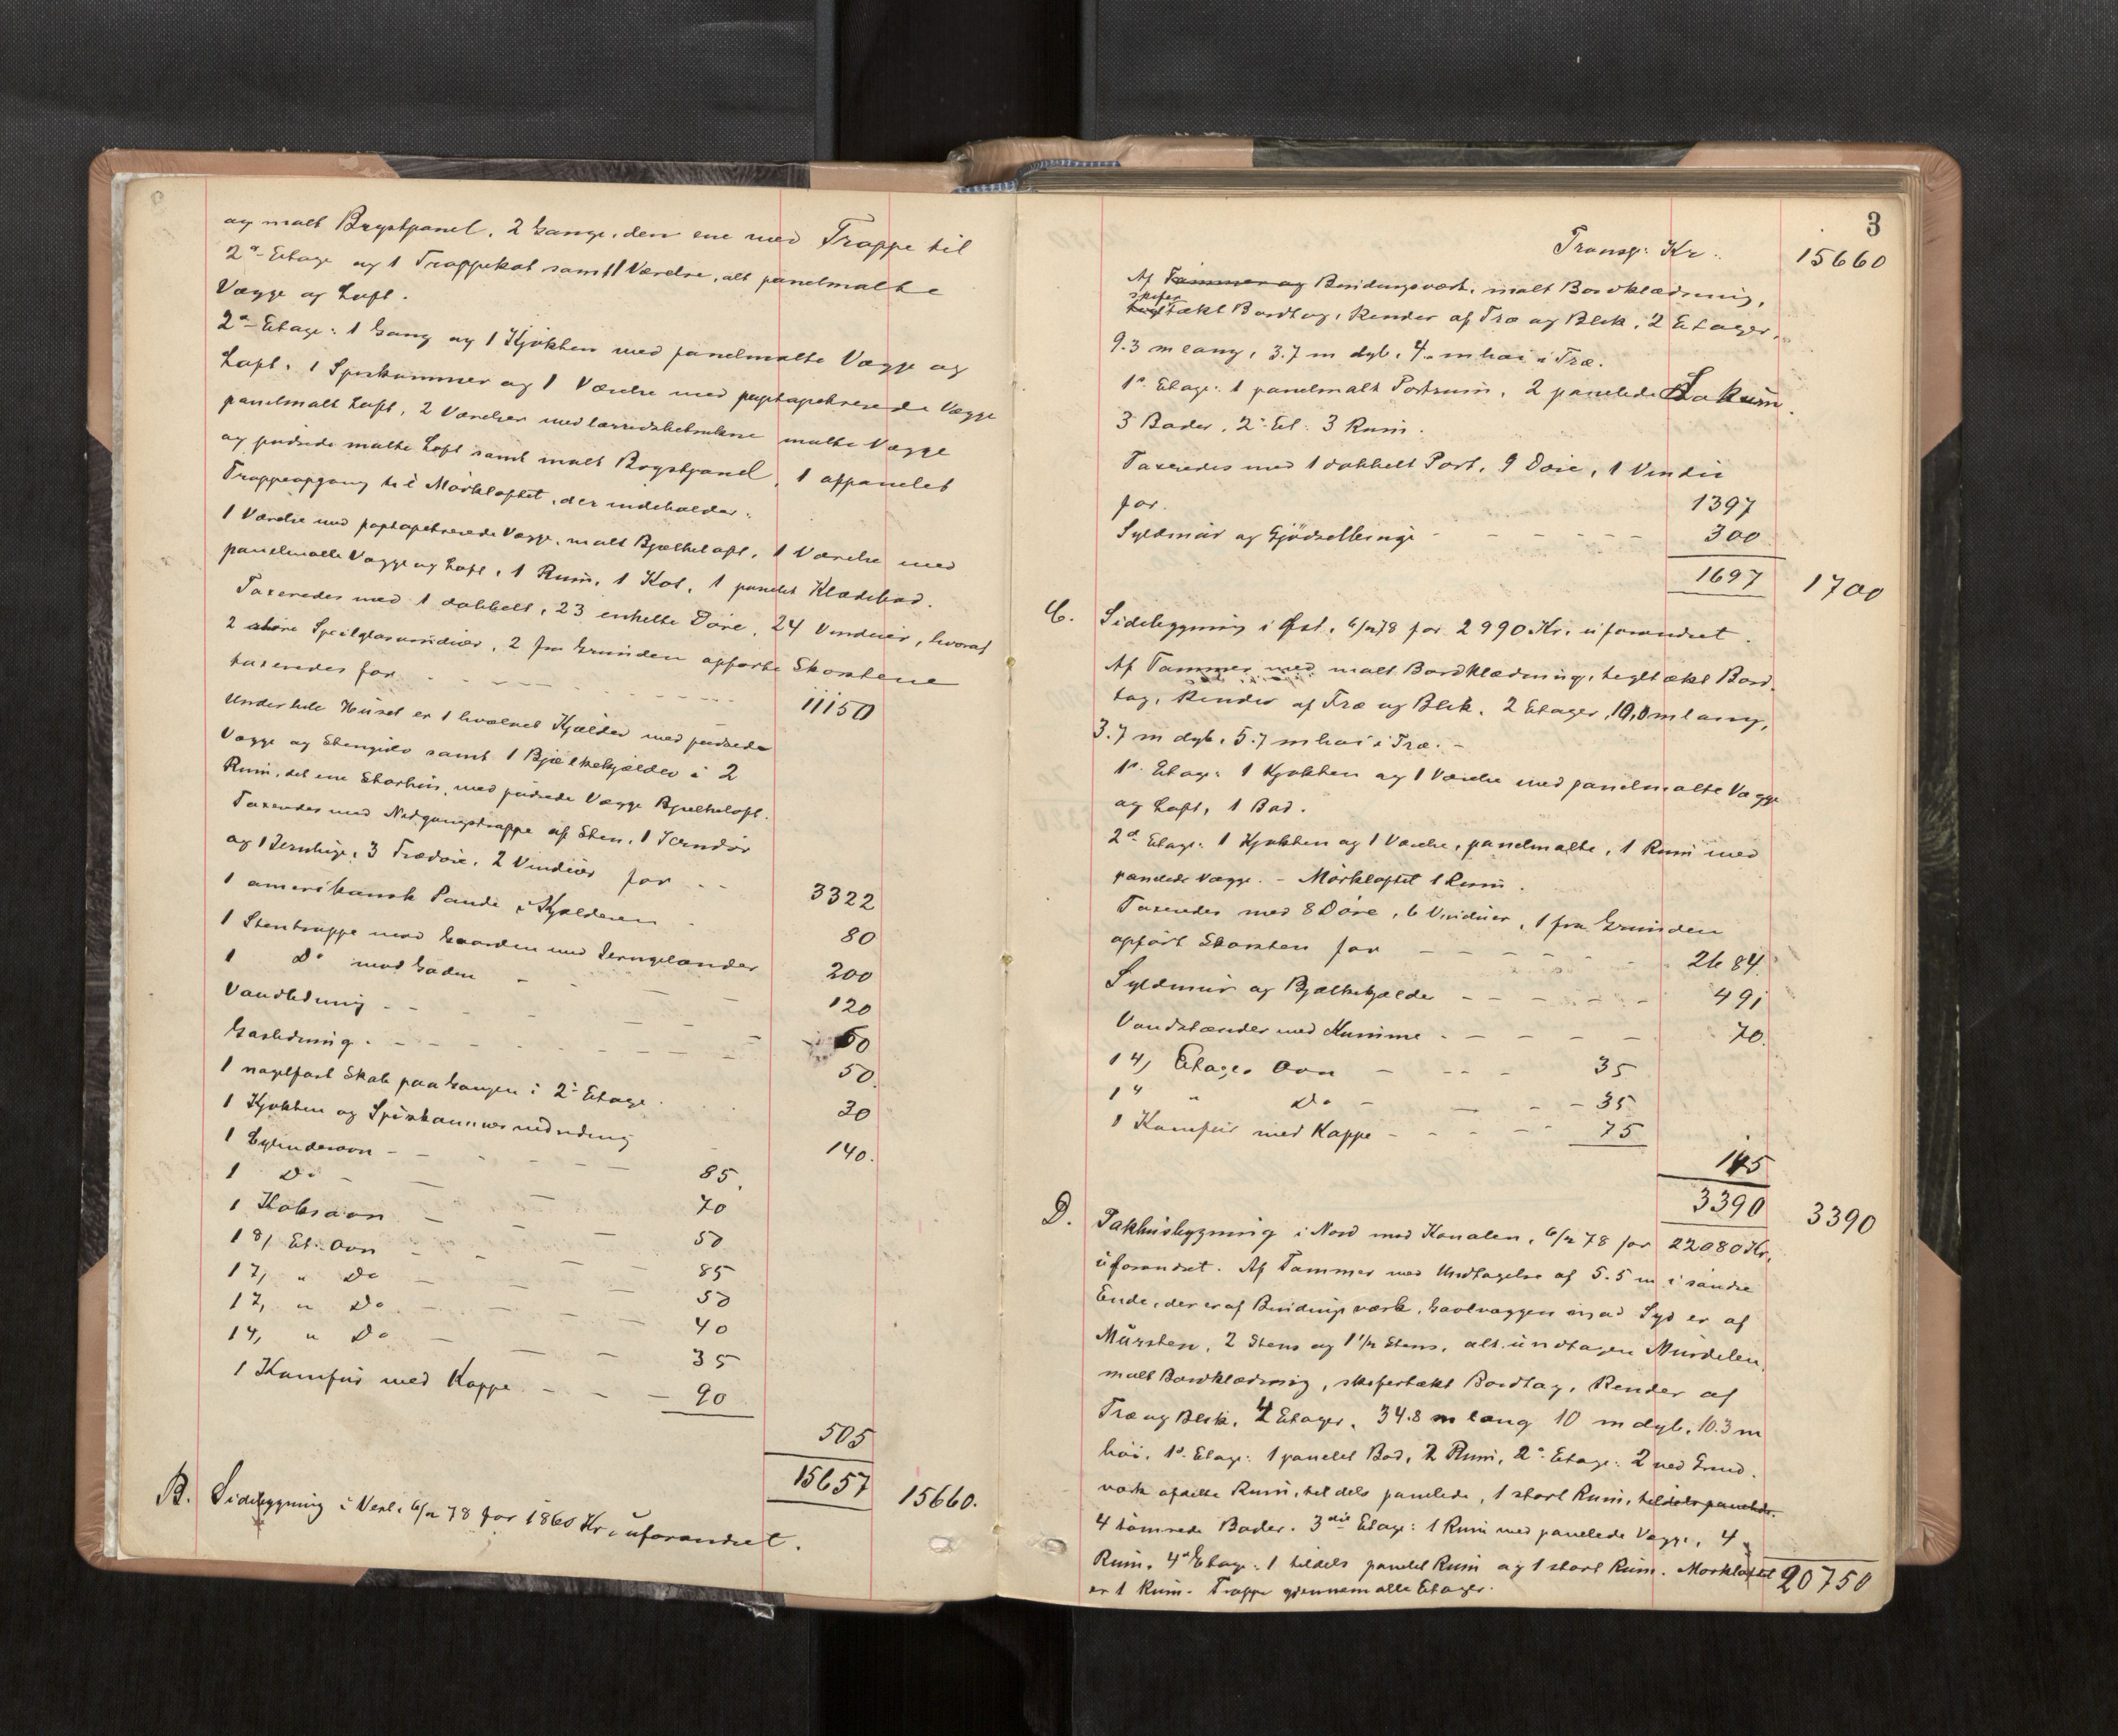 og malt Brystpanel, 2 Gange, den ene med Trappe til
2den Etage og 1 Trappekot samt 1 Værelse, alt panelmalte
Vægge og Loft.
2den Etage: 1 Gang og 1 Kjøkken med panelmalte Vægge og
Loft, 1 Spiskammer og 1 Værelse med paptapetserede Vægge
panelmalt Loft, 2 Værelser med lærredsbetrukne malte Vægge
og pudsede malte Loft samt malt Brystpanel, 1 afpanelet
Trappeopgang til Mørkloftet, der indeholder:
1 Værelse med paptapetserede Vægge, malt Bjælkeloft, 1 Værelse med
panelmalte Vægge og Loft, 1 Rum, 1 Kot, 1 panelet Klædebod.
Taxeredes med 1 dobbelt, 23 enkelte Døre, 24 Vinduer, hvoraf
2 større Speilglasvinduer, 2 fra Grunden opførte Skorstene
taxeredes for 11150
Under hele Huset er 1 hvælvet Kjælder med pudsede
Vægge og Stengulv samt 1 Bjælkekjælder i 2
Rum, det ene Etarhus, med pudsede Vægge Bjælkeloft.
Taxeredes med Nedgangstrappe af Sten, 1 Jerndør
og 1 Jernluge, 3 Trædøre, 2 Vinduer for 3322
1 amerikansk Pande i Kjælderen 80
1 Stentrappe mod Gaarden med Jerngelænder 200
1 Do mod Gaden 120
Vandledning 60
Gasledning 50.
1 nagelfast Skab paa Gangen i 2den Etage 30
1 Kjøkken og Spiskammerindredning 140.
1 Cylinderovn 85.
1 Do 70
1 Koksovn 50
1 8/ Et. Ovn 85
1 7/ " Do 50
1 7/ " Do 40
1 4/ " Do 35
1 Komfur med Kappe 90
505
15657 15660.
B. Sidebygning i Vest, 6/12 78 for 1860 Kr. uforandret.
3
Transp: Kr. 15660
Af Tømmer og Bindingsværk, malt Bordklædning,
skifer
tegltækt Bordtag, Render af Træ og Blik, 2 Etager,
9.3 m lang, 3.7 m dyb, 4. m høi i Træ.
1ste Etage: 1 panelmalt Portrum, 2 panelede Lokum.
3 Boder, 2den Et: 3 Rum.
Taxeredes med 1 dobbelt Port, 9 Døre, 1 Vindu
for 1397
Syldmur og Gjødselbinge 300
1697 1700
C. Sidebygning i Øst, 6/12 78 for 2990 Kr. uforandret.
Af Tømmer med malt Bordklædning, tegltækt Bord-
tag, Render af Træ og Blik, 2 Etager, 10,0 m lang,
3.7 m dyb, 5.7 m høi i Træ. -
1ste Etage: 1 Kjøkken og 1 Værelse med panelmalte Vægge
og Loft, 1 Bod.
2den Etage: 1 Kjøkken og 1 Værelse, panelmalte, 1 Rum med
panelede Vægge. - Mørkloftet 1 Rum.
Taxeredes med 8 Døre, 6 Vinduer, 1 fra Grunden
opført Skorsten for 2684.
Syldmur og Bjælkekjælder 491
Vandstænder med Kumme 70.
1 4/ Etages Ovn 35
1 " " Do 35
1 Komfur med Kappe 75
145
3390 3390
D. Pakhusbygning i Nord mod Kanalen, 6/12 78 for 22080 Kr,
uforandret. Af Tømmer med Undtagelse af 5.5 m i søndre
Ende, der er af Bindingsværk, Gavlvæggen mod Syd er af
Mursten, 2 Stens og 1 1/2 Stens, alt undtagen Murdelen,
malt Bordklædning, skifertækt Bordtag, Render af
Træ og Blik, 4 Etager, 34.8 m lang 10 m dyb, 10.3 m
høi, 1ste Etage: 1 panelet Bod, 2 Rum, 2den Etage: 2 ved Grind-
værk afdelte Rum, tildels panelede, 1 stort Rum, tildels panelede.
4 tømrede Boder. 3die Etage: 1 Rum med panelede Vægge, 4
Rum. 4de Etage: 1 tildels panelet Rum og 1 stort Rum. Mørkloftet
er 1 Rum. Trappe gjennem alle Etager. 20750